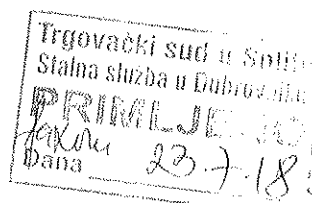 Trgovački sud u Splitu
Stalna služba u Dubrovniku
PRIMLJENO
faxom
Dana 23.7.18